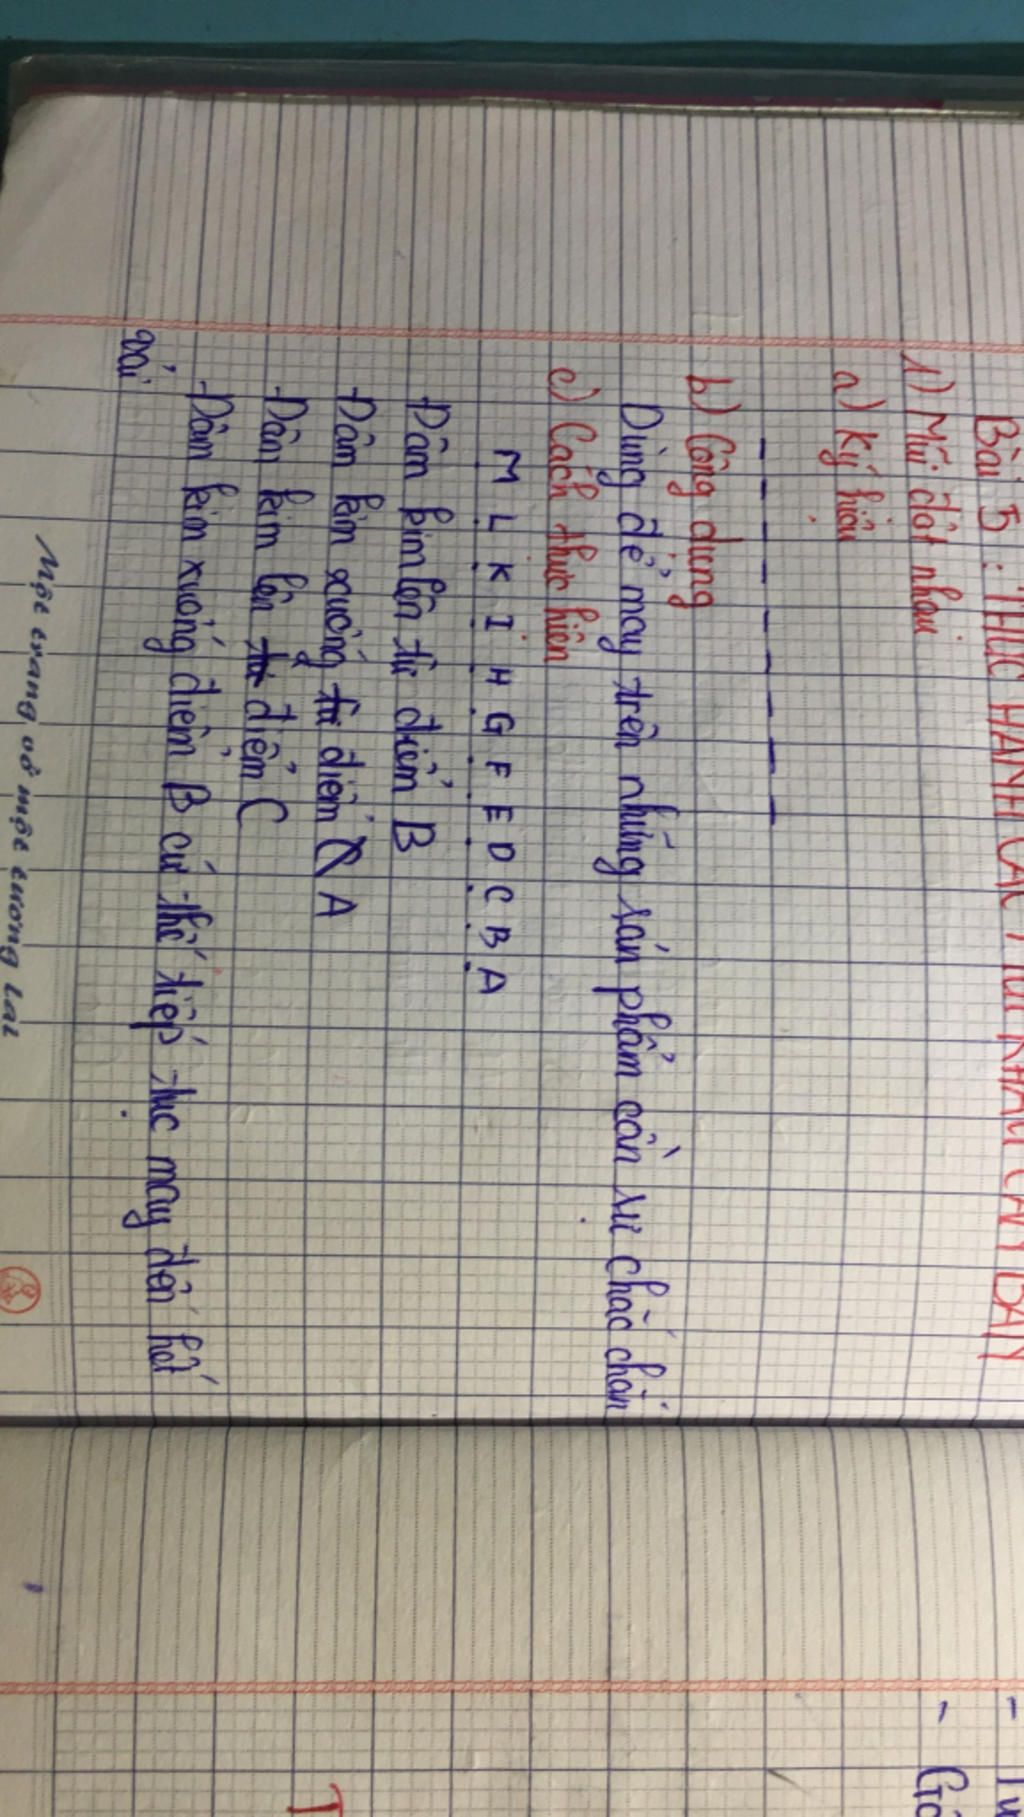 Bài 5: THỰC HÀNH CÁC MŨI KHÂU CĂN BẢN
1) Mũi đột nhau
a) Ký hiệu
b) Công dụng
Dùng để may trên những sản phẩm cần sự chắc chắn
c) Cách thức hiện
M L K I H G F E D C B A
-Đâm kim lên từ điểm B
-Đâm kim xuống điểm A
-Đâm kim lên điểm C
-Đâm kim xuống điểm B cứ thế tiếp tục may đến hết
vải
Một trang vở một tương lai
- 
- Gc
T